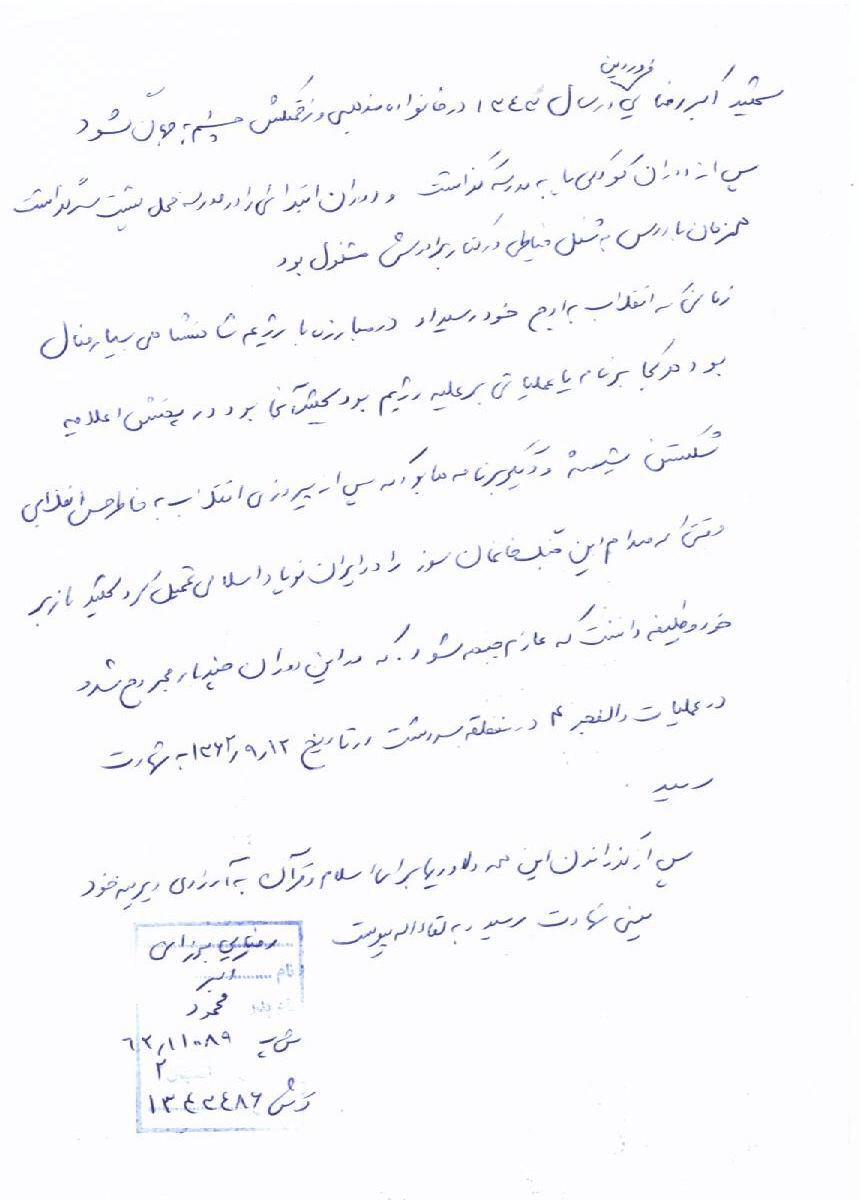 فروردین
شهید اکبر رضائی در سال ۱۳۴۳ در خانواده مذهبی و زحمتکش چشم به جهان گشود
پس از دوران کودکی پا به مدرسه گذاشت و دوران ابتدائی را در مدرسه محل پشت سر گذاشت
همزمان با درس به شغل خیاطی در کنار برادرش مشغول بود
زمانیکه انقلاب به اوج خود رسید او در مبارزه با رژیم شاهنشاهی بسیار فعال
بود هر کجا برنامه یا عملیاتی بر علیه رژیم بود شهید آنجا بود در پخش اعلامیه
شکستن شیشه و دیگر برنامه ها بود که پس از پیروزی انقلاب به خاطر حس انقلابی
وقتی که صدام این جنگ خانمان سوز را در ایران نوپا و اسلامی تحمیل کرد شهید باز بر
خود وظیفه دانست که عازم جبهه شود که در این دوران چند بار مجروح شد و
در عملیات والفجر ۴ در منطقه سردشت در تاریخ ۱۳۶۲٫۹٫۱۲ به شهادت
رسید .
پس از گذراندن این همه دلاوریها برای اسلام و قرآن به آرزوی دیرینه خود
یعنی شهادت رسید و به لقاءاله پیوست
رضایی
نام اکبر
محمود
ش پ ۶۲٫۱۱۰۸۹
۲
کش ۱۳۴۲۴۸۶